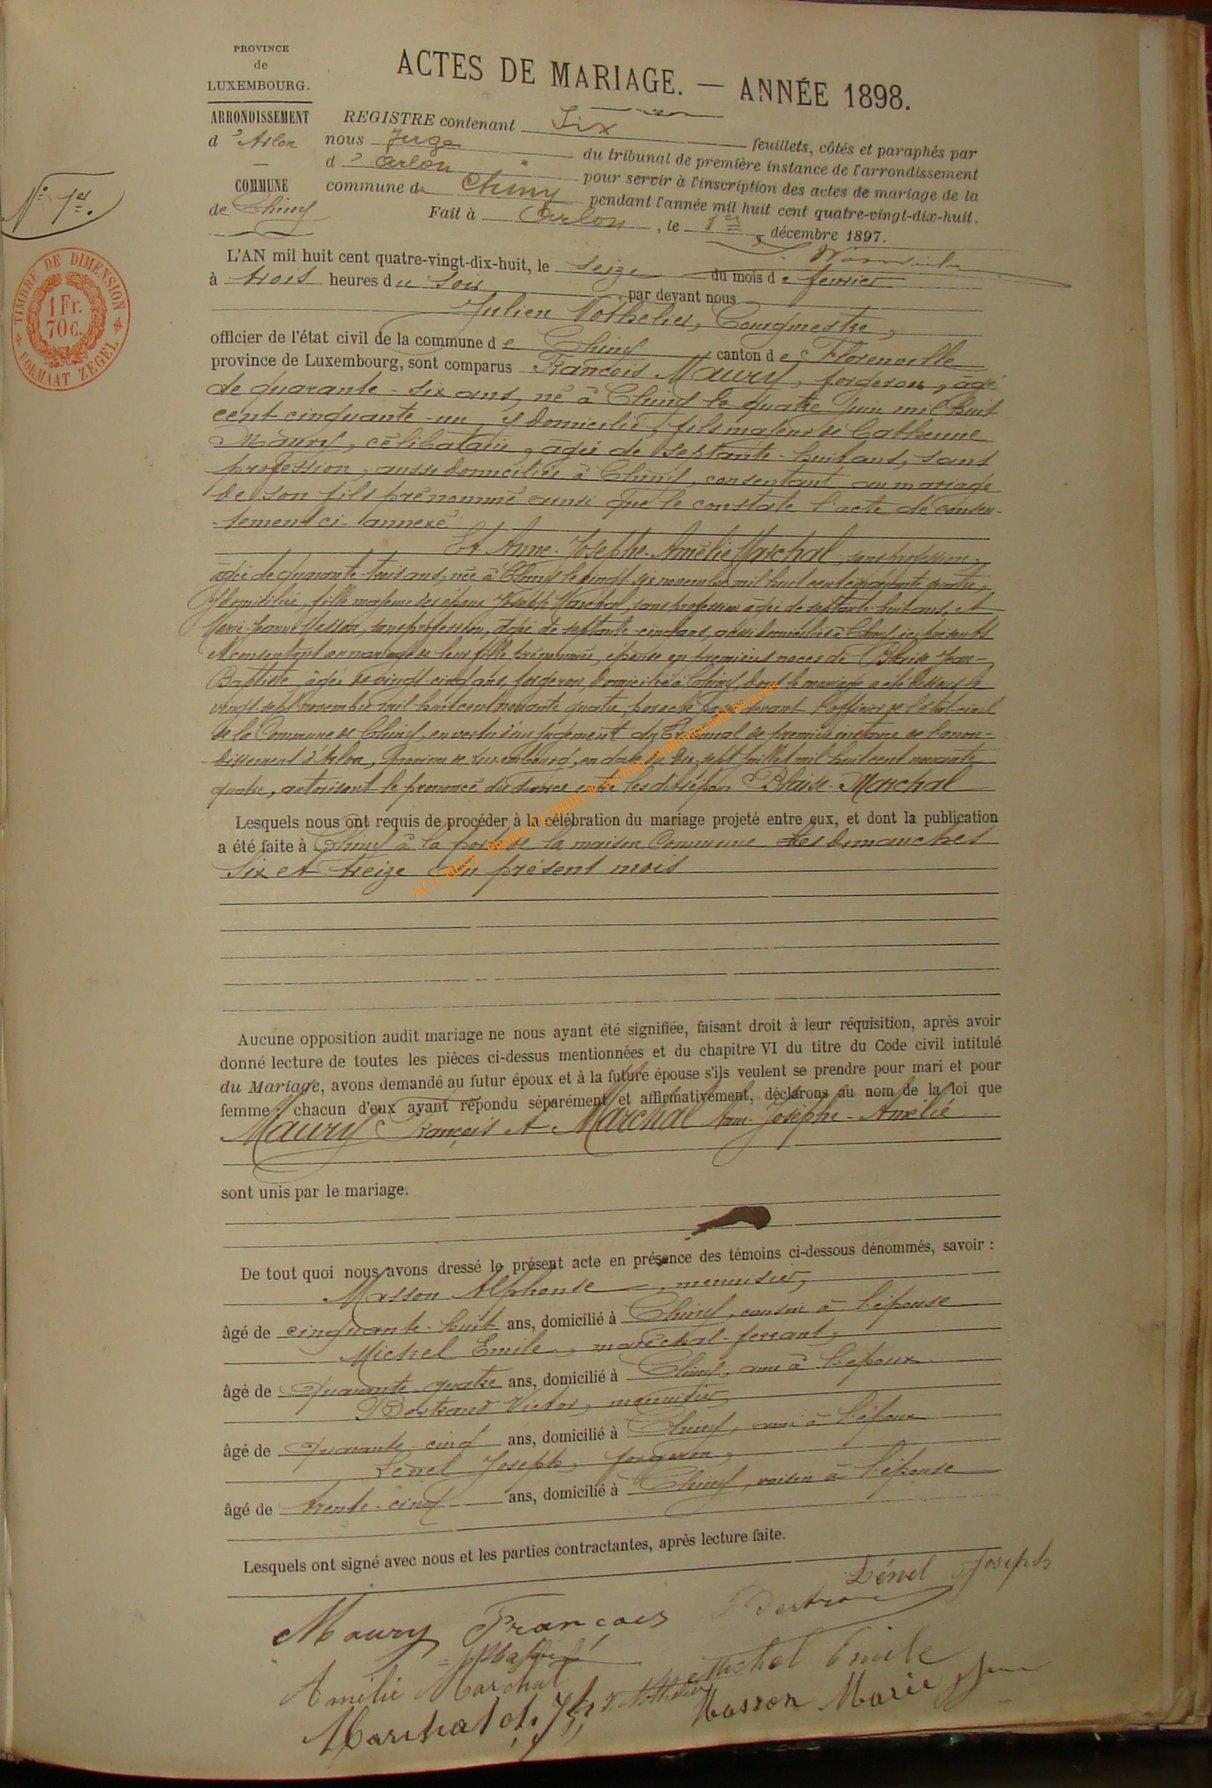 PROVINCE
de
LUXEMBOURG.
ARRONDISSEMENT
d'Arlon
COMMUNE
de Chiny
N° 1er.
TIMBRE DE DIMENSION
1 Fr.
70 c.
FORMAAT ZEGEL
ACTES DE MARIAGE. — ANNÉE 1898.
REGISTRE contenant Six feuillets, côtés et paraphés par
nous Juge du tribunal de première instance de l'arrondissement
d'Arlon pour servir à l'inscription des actes de mariage de la
commune de Chiny pendant l'année mil huit cent quatre-vingt-dix-huit.
Fait à Arlon, le 1er décembre 1897.
L'AN mil huit cent quatre-vingt-dix-huit, le seize du mois de février
à trois heures du soir par devant nous
Julien Nothelier, Bourgmestre,
officier de l'état civil de la commune de Chiny canton de Florenville
province de Luxembourg, sont comparus François Maury, forgeron, âgé
de quarante-six ans, né à Chiny le quatre juin mil huit
cent cinquante-un y domicilié, fils majeur de Catherine
Maury, célibataire, âgée de septante-huit ans, sans
profession, aussi domiciliée à Chiny, consentant au mariage
de son fils prénommé ainsi que le constate l'acte de consen-
-tement ci-annexé
Et Anne-Josèphe-Amélie Marchal, sans profession,
âgée de quarante-trois ans, née à Chiny le vingt six novembre mil huit cent cinquante quatre,
y domiciliée, fille majeure des époux Joseph Marchal, sans profession âgé de septante huit ans, et
Marie-Jeanne Masson, sans profession, âgée de septante-cinq ans, aussi domiciliés à Chiny, ici présents
et consentant au mariage de leur fille prénommée, épouse en premières noces de Blaise Jean-
Baptiste, âgé de vingt-cinq ans, forgeron, domicilié à Chiny, dont le mariage a été dissous le
vingt-sept novembre mil huit cent nonante quatre, par devant l'officier de l'état civil
de la Commune de Chiny, en vertu d'un jugement du Tribunal de première instance de l'arron-
-dissement d'Arlon, Province de Luxembourg, en date du dix-sept juillet mil huit cent nonante
quatre, autorisant le prononcé du divorce entre les dits époux Blaise-Marchal
Lesquels nous ont requis de procéder à la célébration du mariage projeté entre eux, et dont la publication
a été faite à Chiny à la porte de la maison Commune les dimanches
Six et treize du présent mois
Aucune opposition audit mariage ne nous ayant été signifiée, faisant droit à leur réquisition, après avoir
donné lecture de toutes les pièces ci-dessus mentionnées et du chapitre VI du titre du Code civil intitulé
du Mariage, avons demandé au futur époux et à la future épouse s'ils veulent se prendre pour mari et pour
femme : chacun d'eux ayant répondu séparément et affirmativement, déclarons au nom de la loi que
Maury François et Marchal Anne-Josèphe-Amélie
sont unis par le mariage.
De tout quoi nous avons dressé le présent acte en présence des témoins ci-dessous dénommés, savoir :
Masson Alphonse, menuisier,
âgé de cinquante-huit ans, domicilié à Chiny, cousin à l'épouse
Michel Emile, maréchal-ferrant,
âgé de Quarante-quatre ans, domicilié à Chiny, ami à l'époux
Bertrand Victor, menuisier,
âgé de Quarante-cinq ans, domicilié à Chiny, ami à l'époux
Lénel Joseph, forgeron,
âgé de trente-cinq ans, domicilié à Chiny, voisin à l'épouse
Lesquels ont signé avec nous et les parties contractantes, après lecture faite.
Lénel Joseph
Maury François
Michel Emile
Amélie Marchal
J. Nothelier
Masson Marie J
Marchal